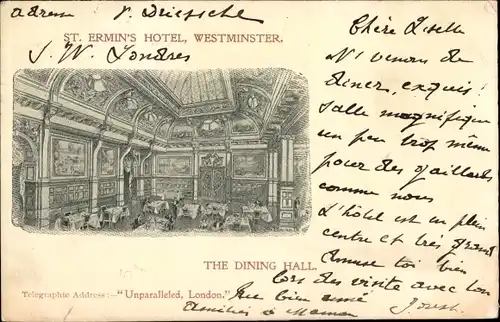 adresse v. Driessche
ST. ERMIN'S HOTEL, WESTMINSTER.
S. W. Londres
Chère Liselle
N's venons de
diner, exquis!
salle magnifique
un peu trop même
pour des gaillards
comme nous
L'hôtel est en plein
centre et très grand
Amuse toi bien
THE DINING HALL.
Lors des visite avec ton
Telegraphic Address:—"Unparalleled, London."
bien aimé
Amitiés à Maman